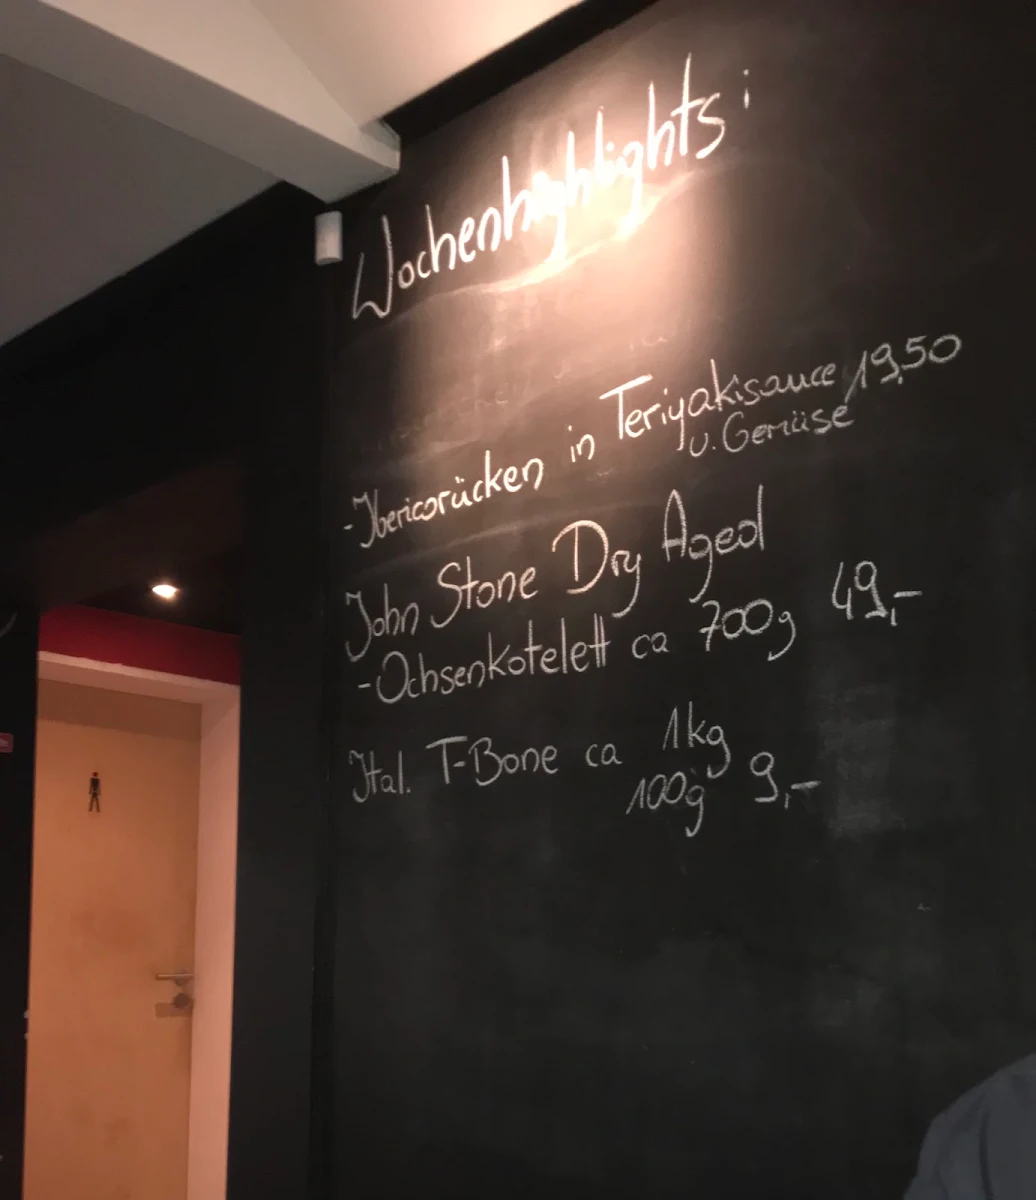 Wochenhighlights:
-Ibericorücken in Teriyakisauce 19,50
u. Gemüse
John Stone Dry Aged
-Ochsenkotelett ca 700g 49,-
Ital. T-Bone ca 1kg
100g 9,-